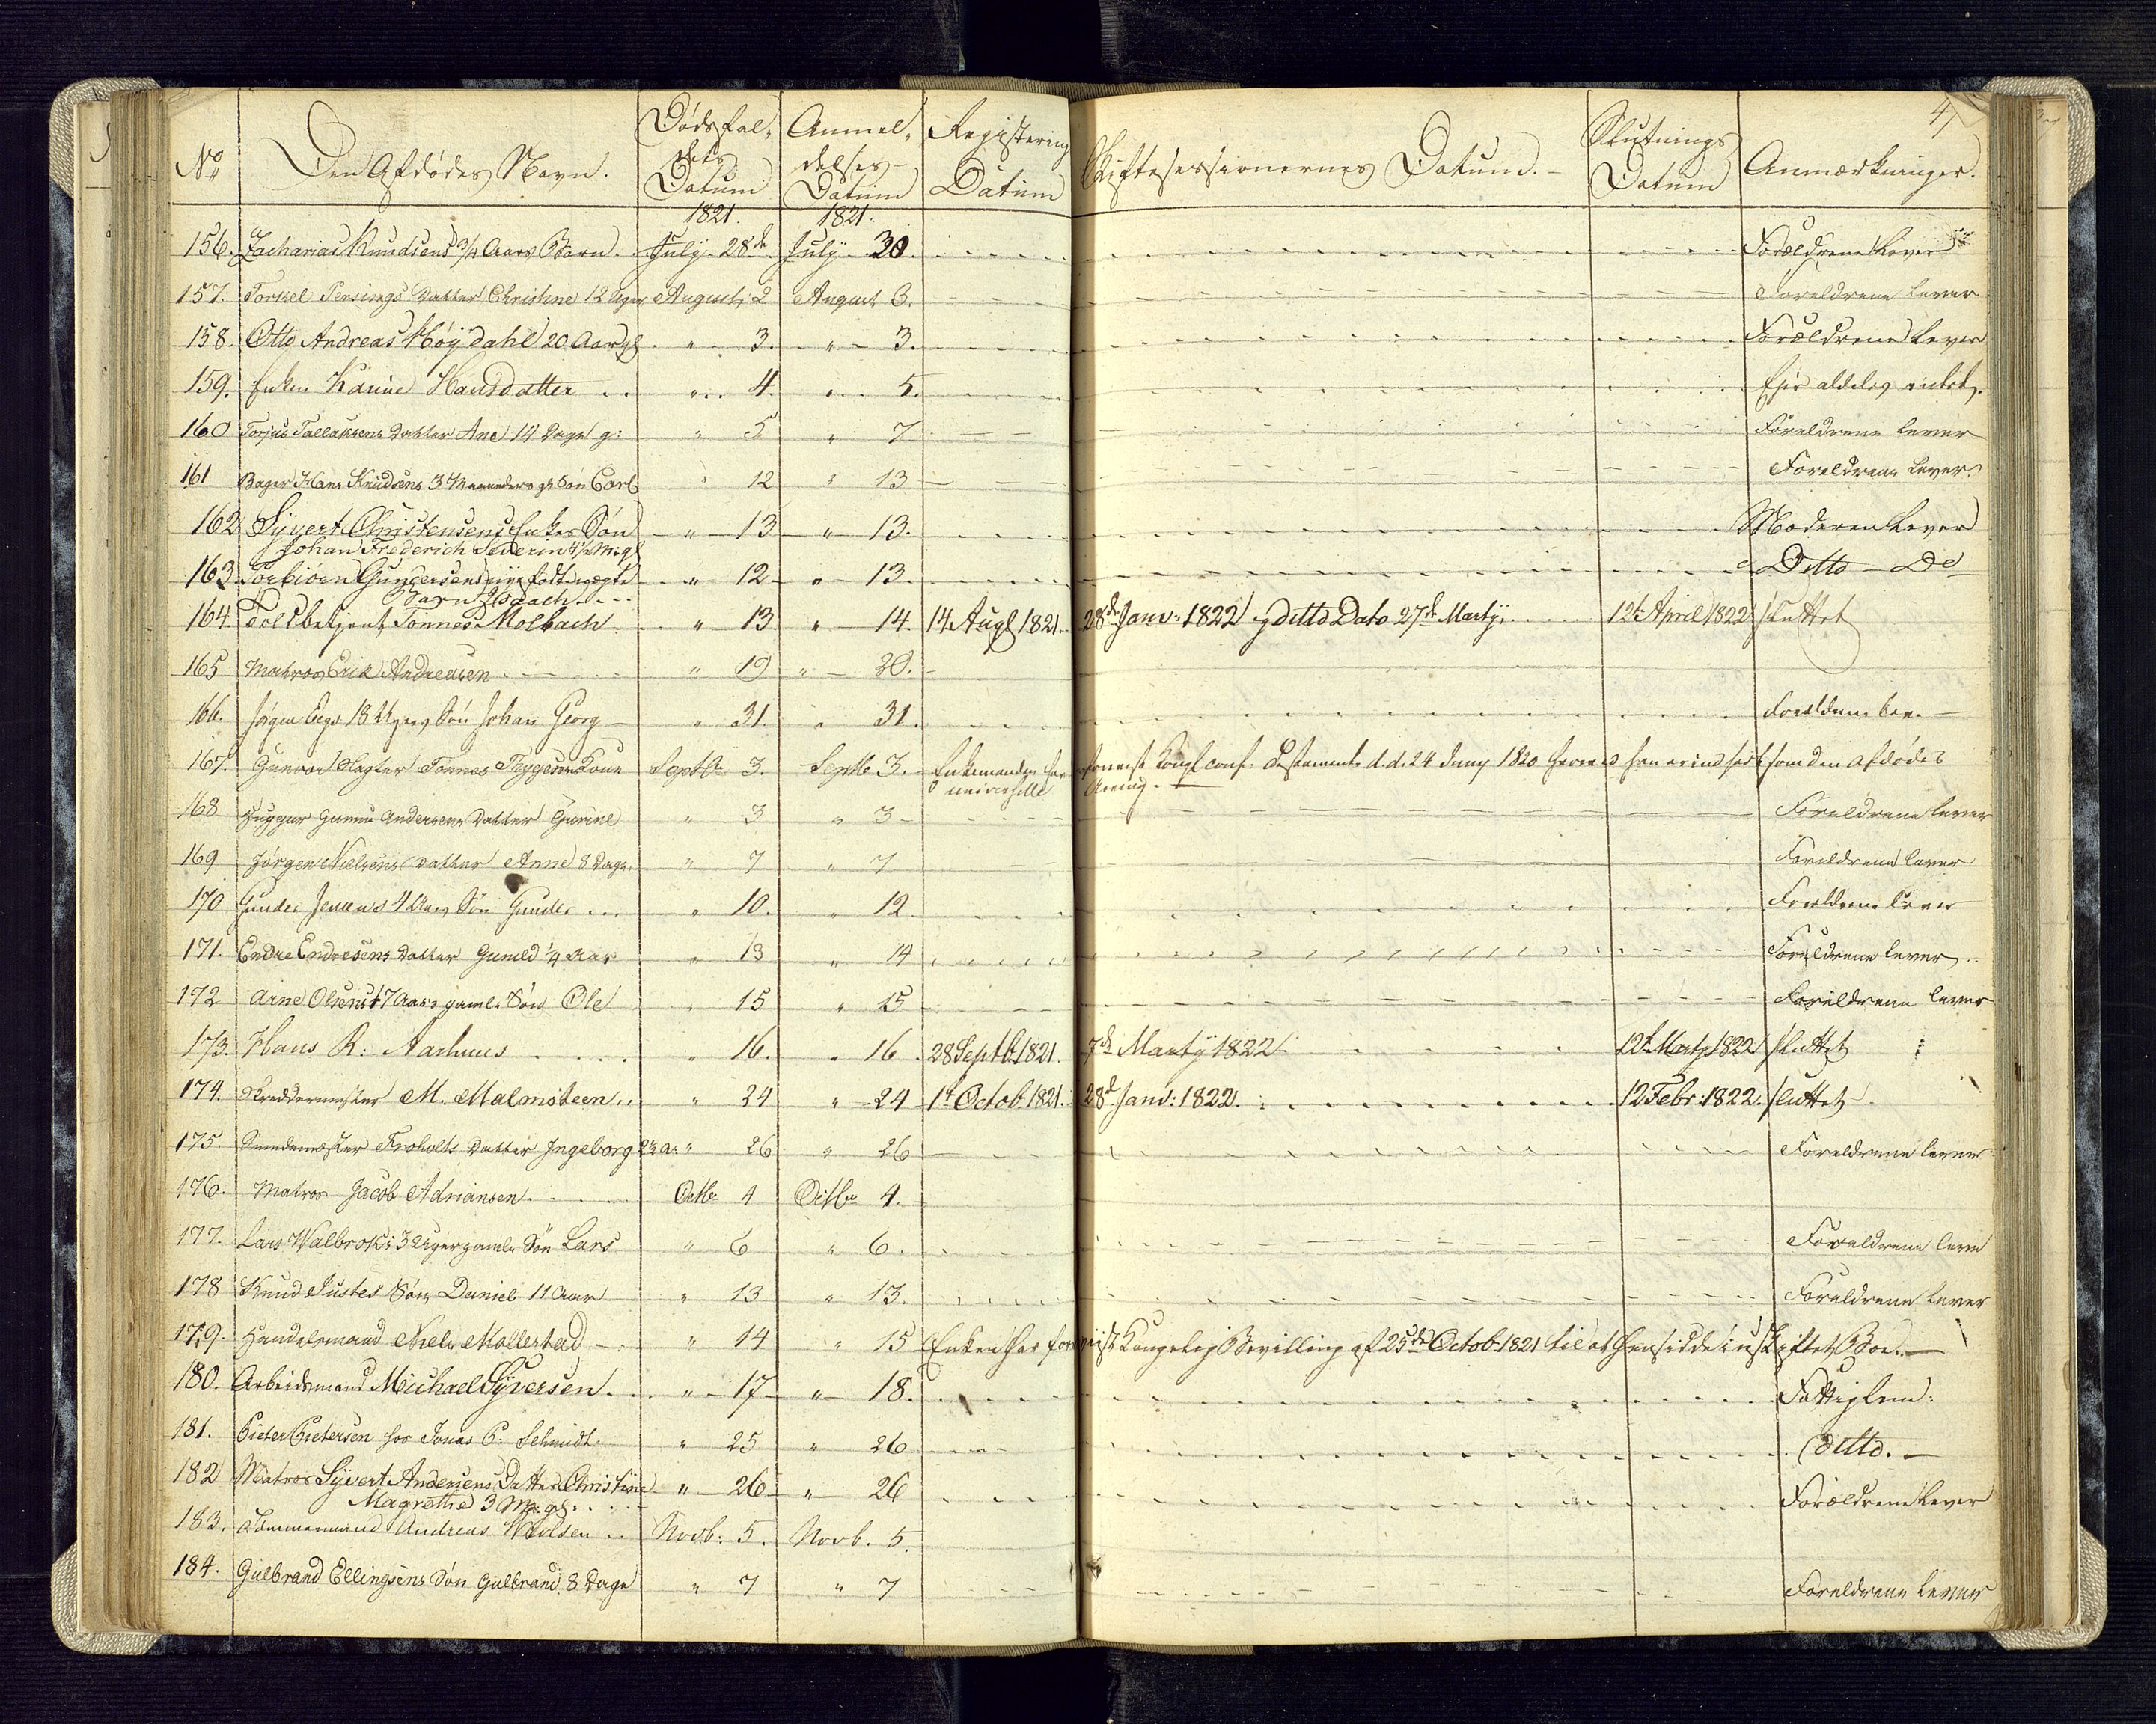 4
No Den Afdødes Navn. Dødsfal- dets Datum Anmel- delses- Datum Registering Datum Skiftesessionernes Datum. Slutnings Datum Anmærkninger.
1821. 1821.
156. Zacharias Knudsens 3/4 Aars Barn. July 28de July 30. Forældrene Lever
157. Torkel Datter Christine 12 Uger August 2 August 3. Foreldrene lever
158. Otto Andreas Høydahl 20 Aar gl " 3. " 3. Forældrene Lever
159. Enken Karine Hansdatter " 4. " 5. Ejer aldeles intet.
160 Torjus Tallaksens Datter Ane 14 Dage g: " 5 " 7 Foreldrene lever
161 Bager Hans Knudsens gl Søn Carl " 12 " 13 Foreldrene lever
162 Syvert Christensens Enkes Søn " 13 " 13. Moderen Lever
Johan Frederich Severin
163 Torbiørn Gundersens " 12 " 13. Ditto Do
Barn Isaach
164. Toldbetjent Tønnes Molbach " 13 " 14. 14 Augt 1821. 28de Janv: 1822 ditto Dato 27de Martÿ 12te April 1822 sluttet
165 Matros Erik Andreasen " 19 " 20.
166. Jørgen 13 Uger Søn Johan Georg " 31. " 31. Forældrene lev.
167. Tønnes Thygesens Kone Septbr 3. Septbr 3. Enkemanden har Kongl conf. Testamente d.d. 24 Juny 1820 som den afdødes
universelle Arving.
168 Gunne Andersens Datter Gurine " 3 " 3 Foreldrene lever
169 Jørgen Nielsens Datter Anne 8 Dage " 7 " 7 Foreldrene lever
170 Gunder Jensens 4 Søn Gunder " 10. " 12 Foreldrene lever
171. Endre Endresens Datter Guneld 1/4 Aar " 13 " 14 Foreldrene lever
172 Arne Olsens 17 Aars gamle Søn Ole " 15 " 15 Foreldrene lever
173. Hans R: Aarhuus " 16. " 16 28 Septbr 1821. 7de Martÿ 1822 12te Martÿ 1822 sluttet
174. Skreddermester M. Malmsteen " 24 " 24 1te Octob 1821. 28d. Janv: 1822. 12 Febr: 1822. sluttet
175. Froholts Datter Ingeborg " 26 " 26 Foreldrene lever
176. Matros Jacob Adriansen. Octbr 4 Octbr 4.
177. Lars Walbroks 3 Uger gamle Søn Lars " 6 " 6. Foreldrene leve
178 Knud Justes Søn Daniel 11 Aar " 13 " 13. Foreldrene lever
179. Handelsmand Niels Mollestad " 14 " 15 Enken har foreviist Kongelig Bevilling af 25de Octob 1821 til at hensidde i uskiftet Boe.
180. Arbeidsmand Michael Syversen. " 17 " 18. Fattiglem:
181. Pieter Pietersen hos Jonas C: Schmidt. " 25 " 26 ditto.
182 Matros Syvert Andersens Datter Christine " 26 " 26 Forældrene Lever
Magrethe 3 M: gl.
183. Tømmermand Andreas Novb: 5. Novb. 5.
184. Gulbrand Ellingsens Søn Gulbrand 8 Dage " 7 " 7 Foreldrene lever